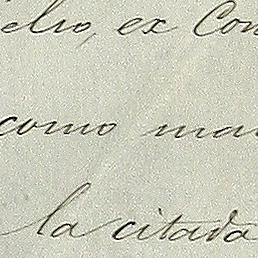 elio, ex Con
como man
la citada